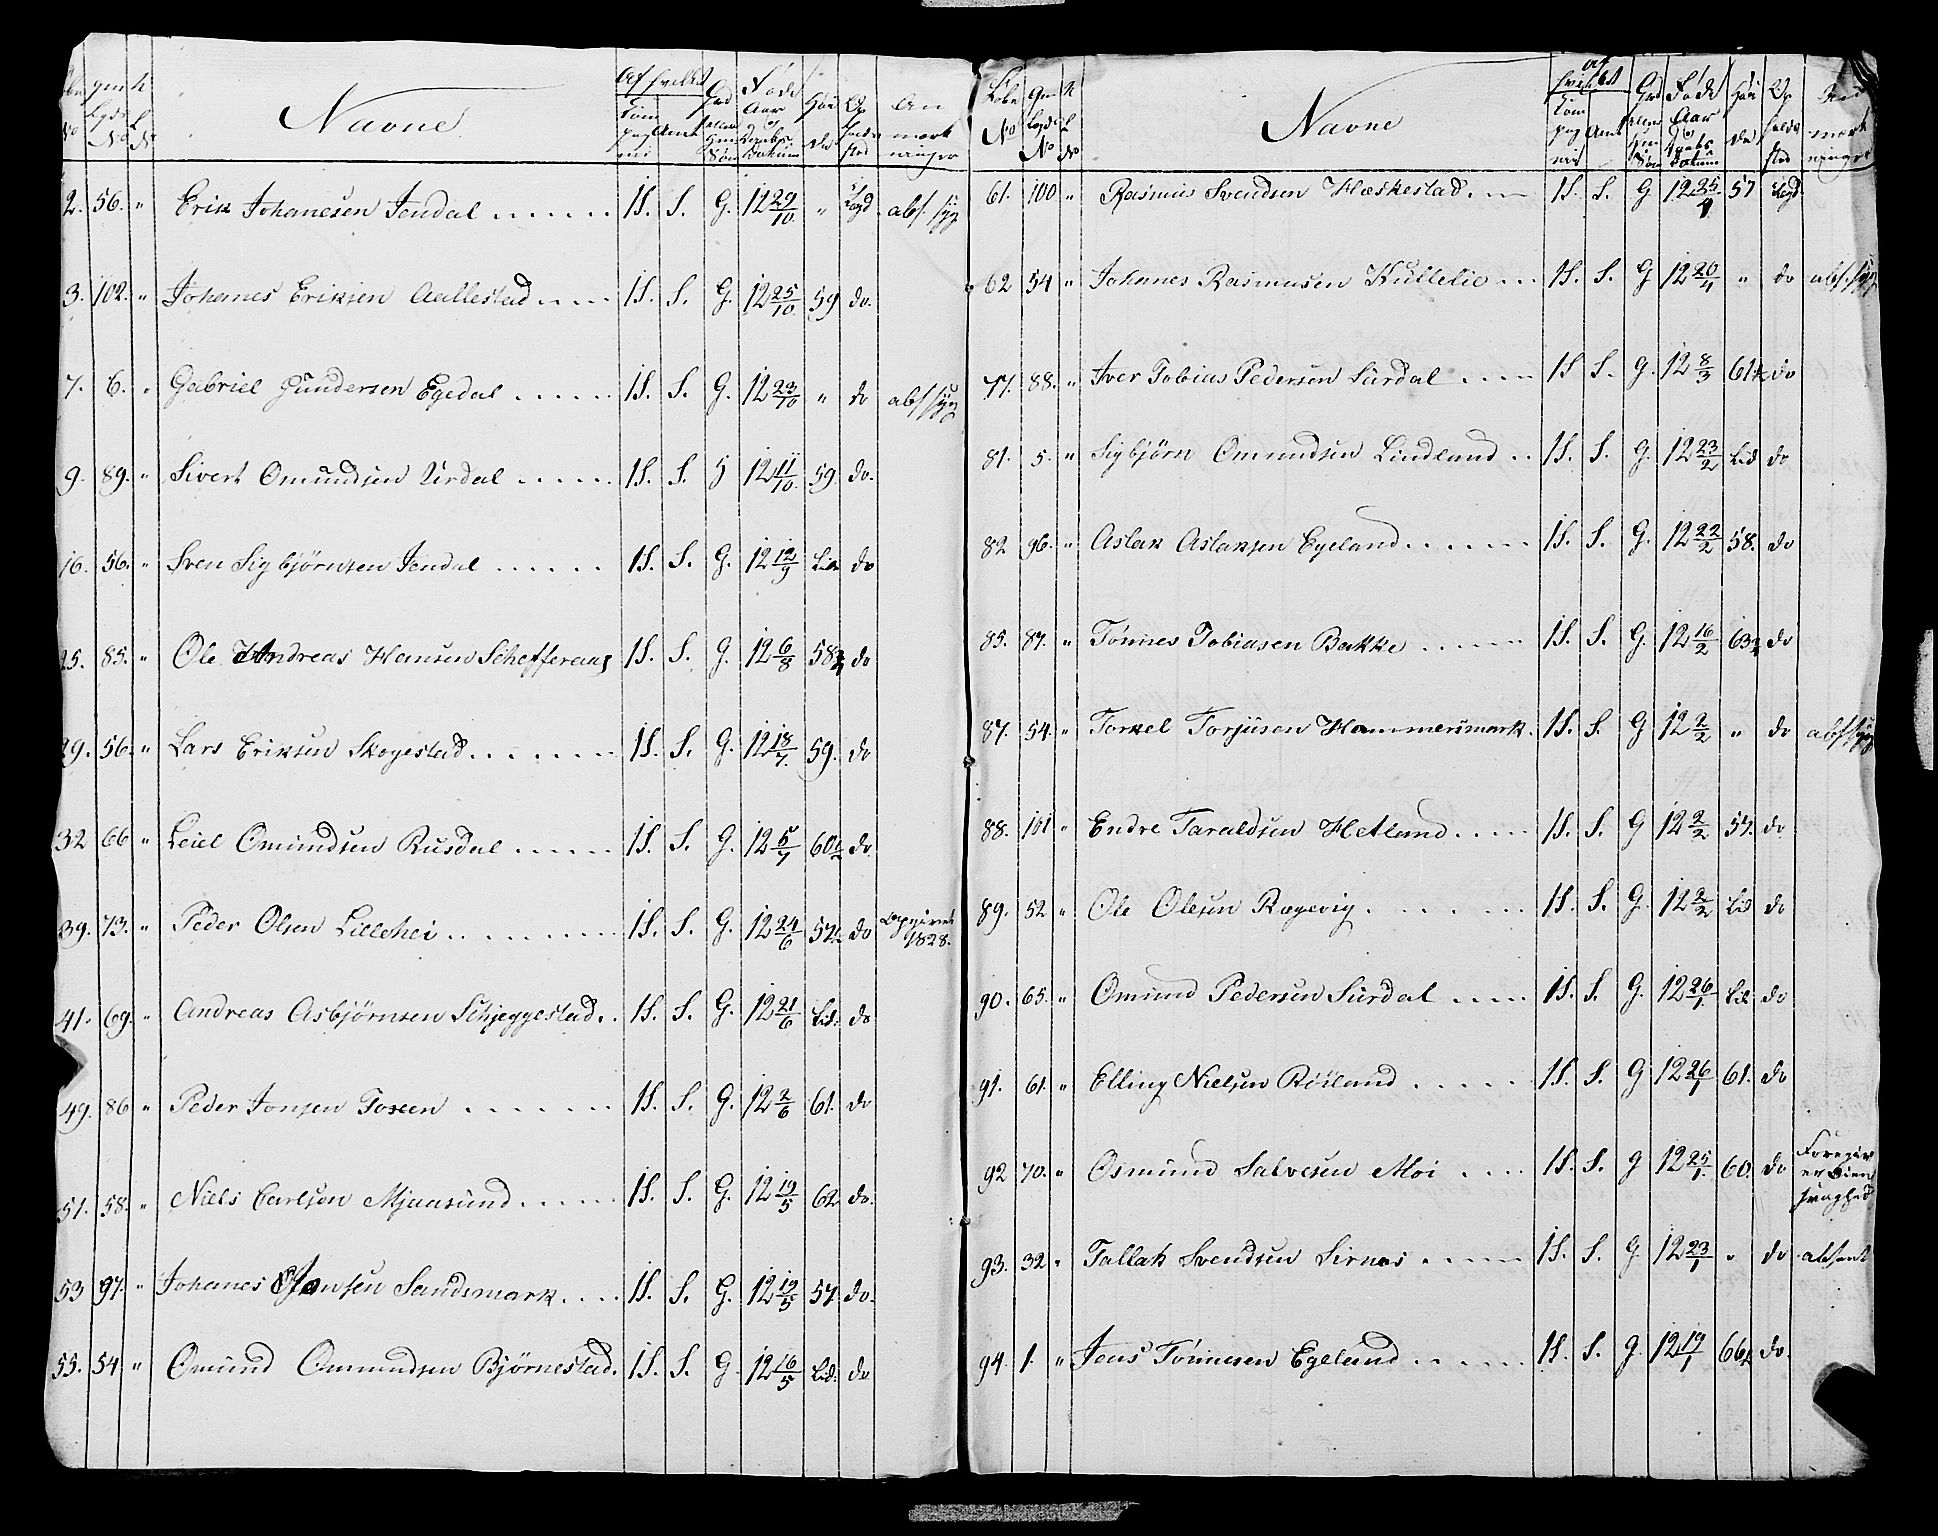 Navne
2. 56. " Erik Johanesen Jendal 1S. S. G. 12 29/10 " Lægd abs. syg
3. 102. " Johanes Eriksen Aallestad 1S. S. G. 12 25/10 59 do.
7. 6. " Gabriel Gundersen Egedal 1S. S. G. 12 23/10 " do abs syg
9. 89. " Sivert Omundsen Urdal 1S. S. 12 11/10 59. do.
16. 56. " Sven Sigbjørnsen Jendal 1S. S. G. 12 12/9 Lid do
25. 85. " Ole Andreas Hansen 1S. S. G. 12 6/8 58 do
29. 56. " Lars Eriksen Skogestad 1S. S. G. 12 18/7 59. do
32 66 " Leiel Omundsen Rusdal 1S. S. G. 12 5/7 60½ do
39. 73. " Peder Olsen Lillehei 1S. S. G. 12 24/6 57 do 1828.
41. 69. " Andreas Asbjørnsen Schjeggestad 1S. S. G. 12 21/6 Lid. do
49. 86 " Peder Jonsen Toxeen 1S. S. G. 12 2/6 61. do
51. 58. " Niels Carlsen Mjaasund 1S. S. G. 12 19/5 62 do.
53 97. " Johanes Jansen Sandsmark 1S. S. G. 12 19/5 57. do.
55. 54 " Omund Ommundsen Bjørnestad. 1S. S. G 12 16/5 Lid. do
Løbe No
Navne
61. 100 " Rasmus Svendsen Hæskestad 1S. S. G 12 25/4 57 Lægd
62 54 " Johanes Rasmussen Kullelie 1S. S. G 12 20/4 " do abs. syg
77. 88. " Iver Tobias Pedersen Surdal 1S S. G. 12 8/3 61 do
81. 5. " Sigbjørn Omundsen Lindland 1S. S. G. 12 23/2 Lid do
82 96. " Aslak Aslaksen Egeland 1S. S. G. 12 22/2 58. do
85. 87. " Tønnes Tobiasen Bakke 1S. S. G. 12 16/2 63 do
87. 54. " Torkel Torjusen Hammersmark 1S. S. G 12 2/2 " do abs syg
88. 101 " Endre Taraldsen Hetland 1S. S. G 12 2/2 57. do
89. 52 " Ole Olesen Rægevig 1S. S. G. 12 2/2 Lid do
90. 65. " Omund Pedersen Surdal 1S. S. G. 12 26/1 Lid do
91. 61. " Elling Nielsen Røiland 1S. S. G 12 26/1 61. do
92 70. " Osmund Salvesen Moi 1S. S. g 12 25/1 60. do Foregiver Øien svaghed
93. 32. " Tallak Svendsen Sirnæs 1S. S. G 12 23/1 " do absent
94. 1. " Jens Tønnesen Egeland 1S. S. g. 12 17/1 66½ do.